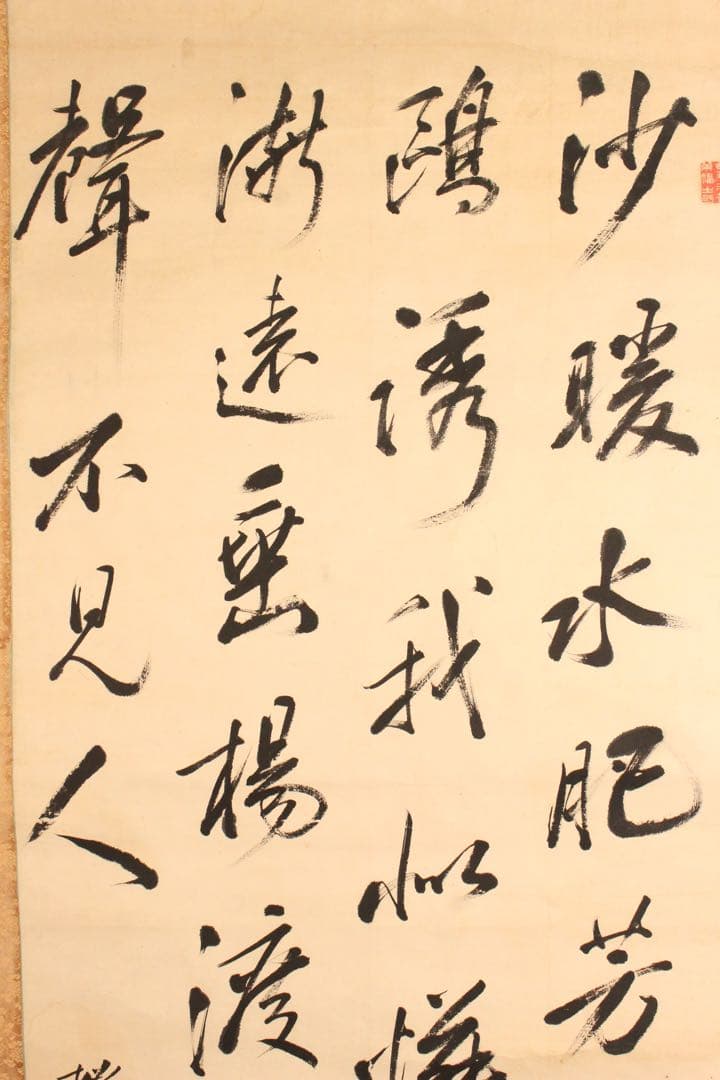 沙暖水肥芳
鴎誘我似
漸遠垂楊渡
聲不見人